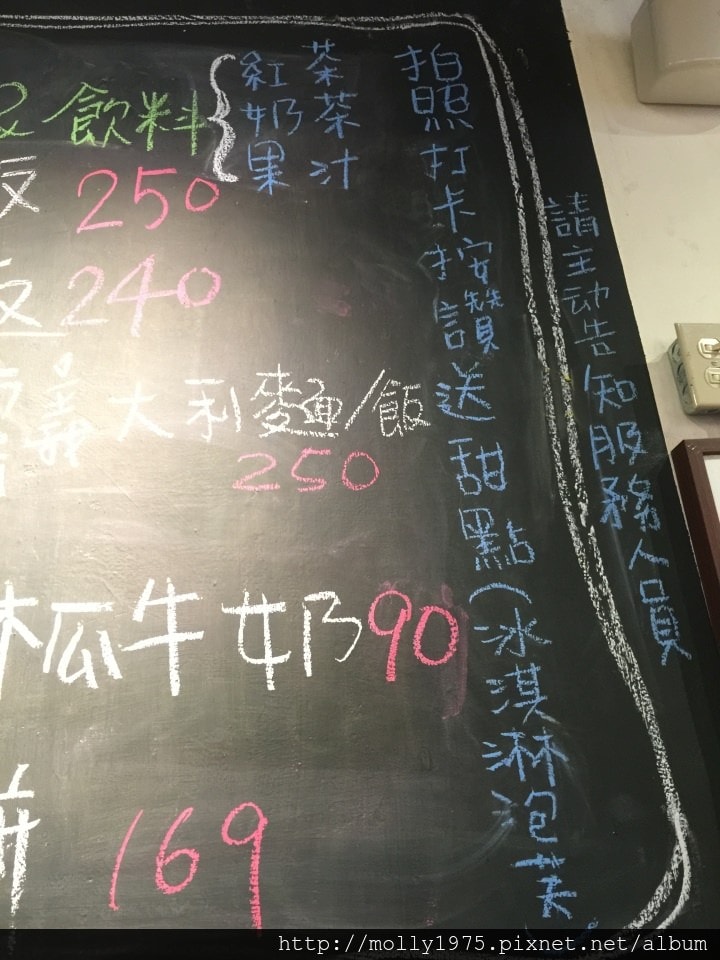 & 飲料
紅茶
奶茶
果汁
250
240
大利麵/飯
250
木瓜牛奶90
169
拍照打卡按讚送甜點(冰淇淋泡芙
請主动告知服務人員
http://molly1975.pixnet.net/album